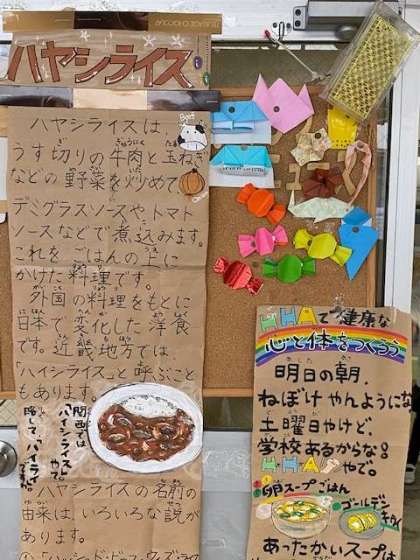 ハヤシライス
ハヤシライスは、
うす切りの牛肉と玉ねぎ
などの野菜を炒めて
デミグラスソースや、トマト
ソースなどで煮込みます。
これを ごはんの上に
かけた料理です。
外国の料理をもとに
日本で変化した洋食
です。近畿地方では
「ハイシライス」と呼ぶこと
もあります。
関西では
ハイシライスやで
略して、「ハイライ」
ですわ
ハヤシライスの名前の
由来は、いろいろな説が
あります。
健康な
心と体をつくろう
明日の朝、
ねぼけやんようにな
土曜日やけど、
学校あるからな!
やで。
卵スープごはん
ゴールデン
キウイ
あったかいスープは